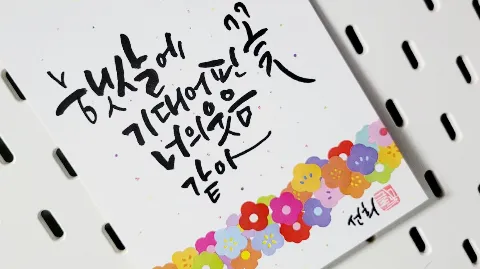 햇살에
기대어 핀 꽃
너의 웃음
같아
선희